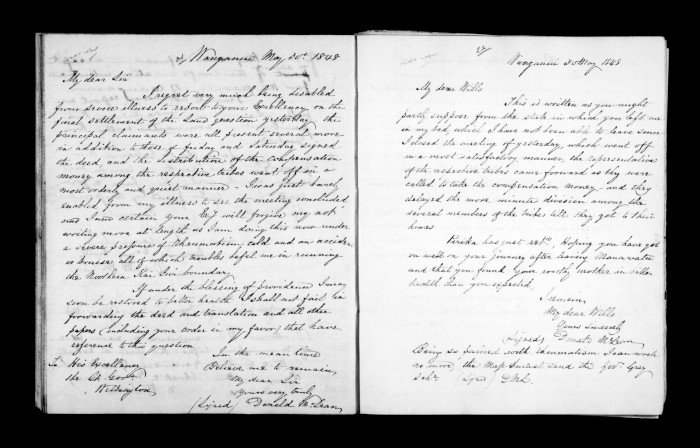 Wanganui May 30th 1848
My dear Sir
I regret very much being disabled
from severe illness to report to your Excellency on the
final settlement of the Land question yesterday the
principal claimants were all present several more
in addition to those of friday and saturday signed
the deed, and the distribution of the compensation
money among the respective tribes went off in a
most orderly and quiet manner - I was just barely
enabled from my illness to see the meeting concluded
and I am certain your Exy will forgive my not
writing more at length as I am doing this now under
a severe pressure of Rheumatism, cold and an accident
or bruise all of which troubles befel me in running
the Northern Kai Iwi boundary
If under the blessing of providence I may
soon be restored to better health I shall not fail in
forwarding the deed and translation and all other
papers (including your order in my favor) that have
reference to this question
In the mean time
To His Excellency Believe me to remain
the Lt Govr My dear Sir
Wellington Yours very truly
(Signed) Donald McLean
27
Wanganui 30 May 1848
My dear Wills
This is written as you might
partly suppose from the state in which you left me
in my bed, which I have not been able to leave since
I closed the meeting of yesterday, which went off
in a most satisfactory manner, the representatives
of the respective tribes came forward as they were
called to take the compensation money - and they
delayed the more minute division among the
several members of the tribes till they got to their
homes
has just Hoping you have got
on well on your journey after leaving Manawatu
and that you found your worthy mother in better
health than you expected
I remain,
My dear Wills
Yours sincerely
(Signed) Donald McLean
Being so pained with rheumatism I can write
no more, the Mass send the Govr Grey
(Signed) DMcL